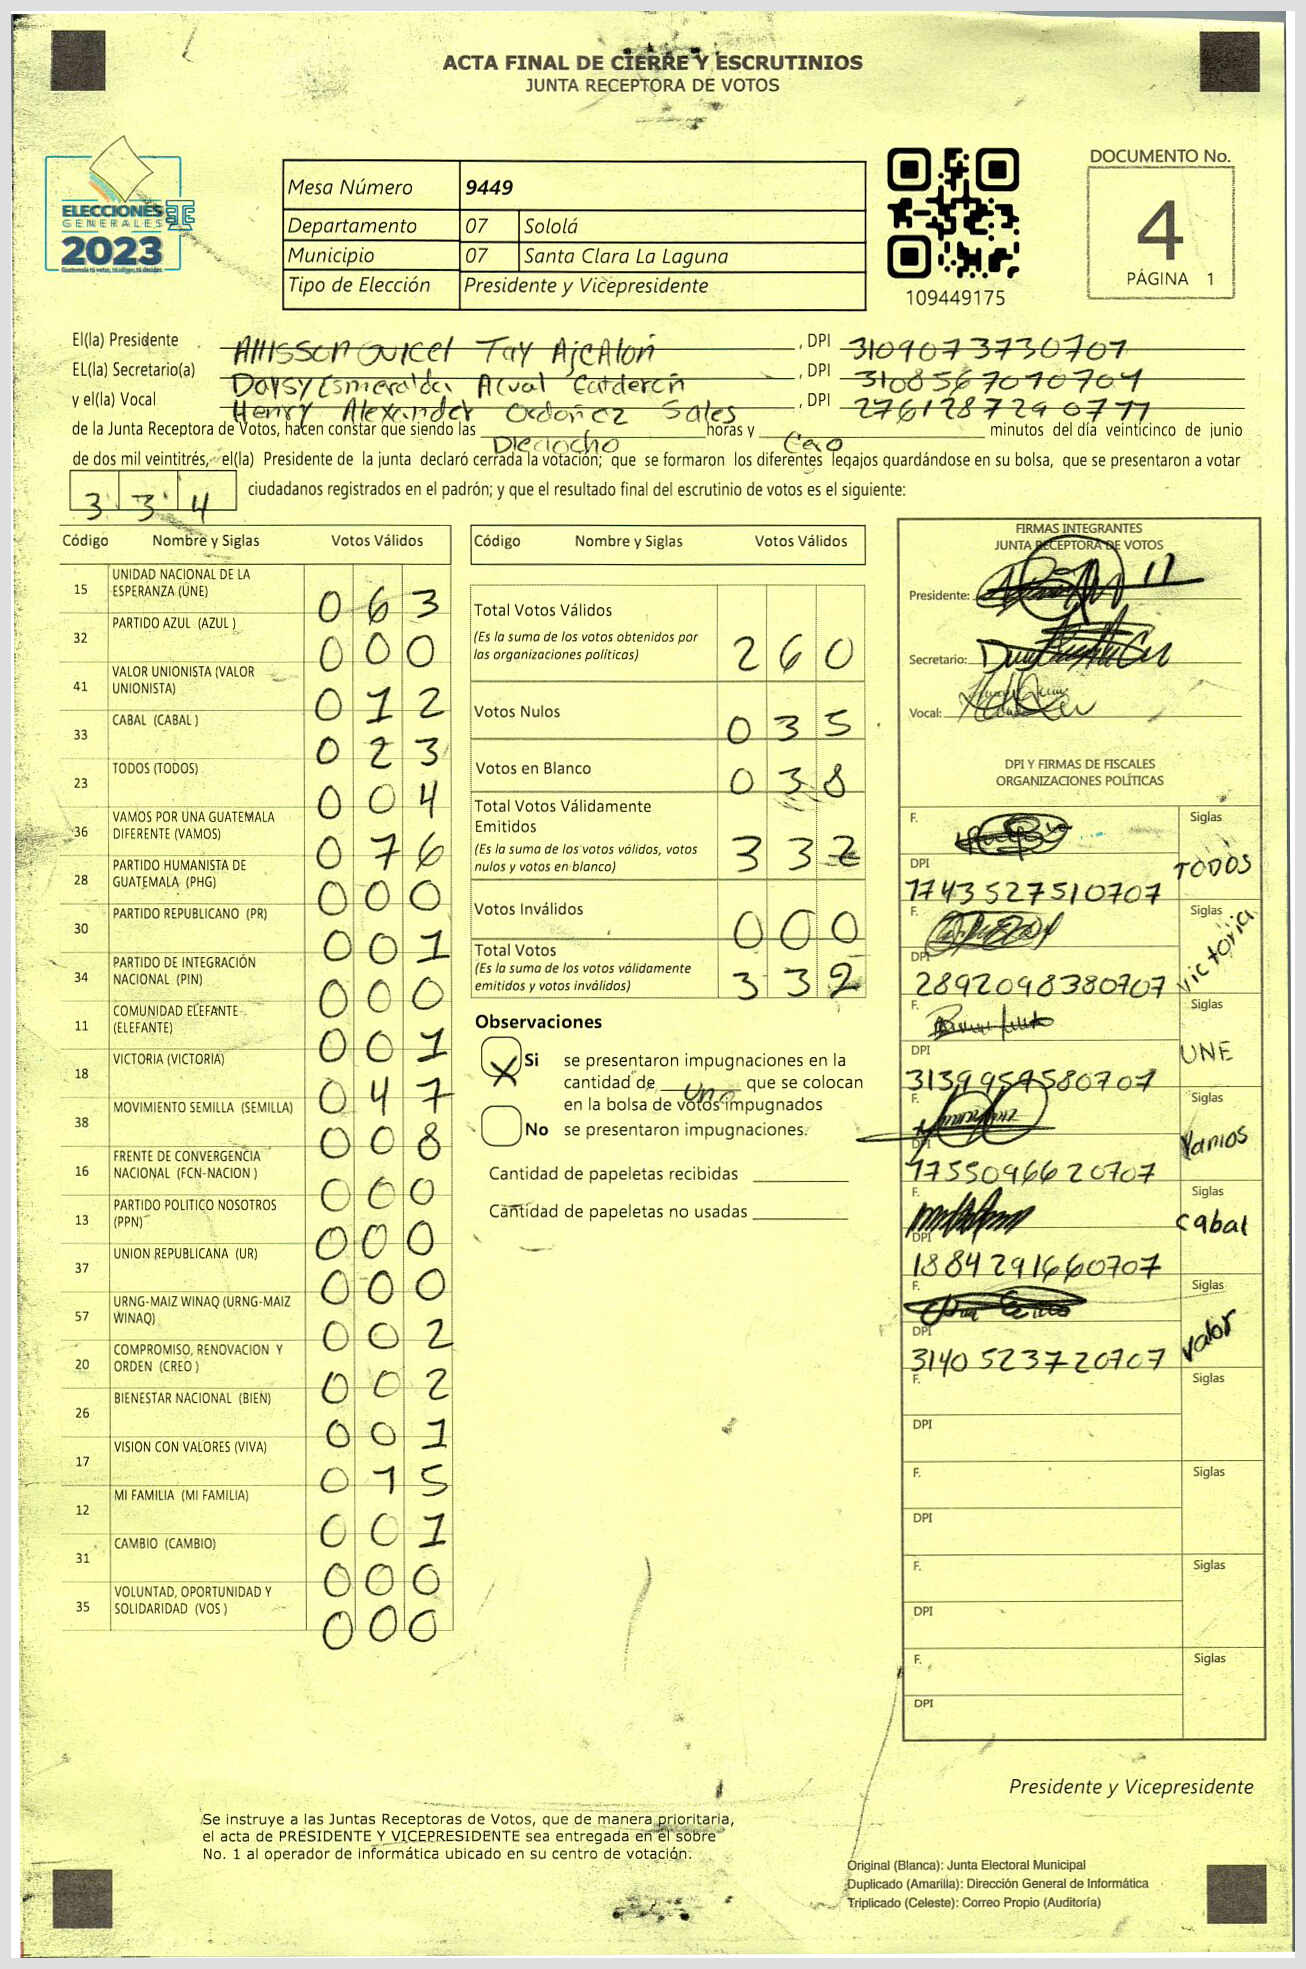 ACTA FINAL DE CIERRE Y ESCRUTINIOS
JUNTA RECEPTORA DE VOTOS
ELECCIONES
GENERALES TSE
2023
Guatemala tú votas, tú eliges, tú decides.
Mesa Número 9449
Departamento 07 Sololá
Municipio 07 Santa Clara La Laguna
Tipo de Elección Presidente y Vicepresidente
109449175
DOCUMENTO No.
4
PÁGINA 1
El(la) Presidente Tay AjcAlon , DPI 3109073730707
EL(la) Secretario(a) Daysy Esmeralda Calderón , DPI
y el(la) Vocal Henry Alexander Ordoñez Sales , DPI
de la Junta Receptora de Votos, hacen constar que siendo las Dieciocho horas y Cero minutos del día veinticinco de junio
de dos mil veintitrés, el(la) Presidente de la junta declaró cerrada la votación; que se formaron los diferentes legajos guardándose en su bolsa, que se presentaron a votar
334 ciudadanos registrados en el padrón; y que el resultado final del escrutinio de votos es el siguiente:
Código Nombre y Siglas Votos Válidos
15 UNIDAD NACIONAL DE LA ESPERANZA (UNE) 063
32 PARTIDO AZUL (AZUL ) 000
41 VALOR UNIONISTA (VALOR UNIONISTA) 012
33 CABAL (CABAL ) 023
23 TODOS (TODOS) 004
36 VAMOS POR UNA GUATEMALA DIFERENTE (VAMOS) 076
28 PARTIDO HUMANISTA DE GUATEMALA (PHG) 000
30 PARTIDO REPUBLICANO (PR) 001
34 PARTIDO DE INTEGRACIÓN NACIONAL (PIN) 000
11 COMUNIDAD ELEFANTE (ELEFANTE) 001
18 VICTORIA (VICTORIA) 047
38 MOVIMIENTO SEMILLA (SEMILLA) 008
16 FRENTE DE CONVERGENCIA NACIONAL (FCN-NACION ) 000
13 PARTIDO POLITICO NOSOTROS (PPN) 000
37 UNION REPUBLICANA (UR) 000
57 URNG-MAIZ WINAQ (URNG-MAIZ WINAQ) 002
20 COMPROMISO, RENOVACION Y ORDEN (CREO ) 002
26 BIENESTAR NACIONAL (BIEN) 001
17 VISION CON VALORES (VIVA) 015
12 MI FAMILIA (MI FAMILIA) 001
31 CAMBIO (CAMBIO) 000
35 VOLUNTAD, OPORTUNIDAD Y SOLIDARIDAD (VOS ) 000
Código Nombre y Siglas Votos Válidos
Total Votos Válidos 260
(Es la suma de los votos obtenidos por
las organizaciones políticas)
Votos Nulos 035
Votos en Blanco 038
Total Votos Válidamente
Emitidos 332
(Es la suma de los votos válidos, votos
nulos y votos en blanco)
Votos Inválidos 000
Total Votos 332
(Es la suma de los votos válidamente
emitidos y votos inválidos)
Observaciones
X Si se presentaron impugnaciones en la
cantidad de Uno que se colocan
en la bolsa de votos impugnados
No se presentaron impugnaciones.
Cantidad de papeletas recibidas
Cantidad de papeletas no usadas
FIRMAS INTEGRANTES
JUNTA RECEPTORA DE VOTOS
Presidente:
Secretario:
Vocal:
DPI Y FIRMAS DE FISCALES
ORGANIZACIONES POLÍTICAS
F. Siglas TODOS
DPI 1743527510707
F. Siglas Victoria
DPI 2892098380707
F. Siglas UNE
DPI 3139959580707
F. Siglas Vamos
DPI 1755096620707
F. Siglas Cabal
DPI 1884291660707
F. Siglas Valor
DPI 3140523720707
F. Siglas
DPI
F. Siglas
DPI
F. Siglas
DPI
F. Siglas
DPI
Presidente y Vicepresidente
Se instruye a las Juntas Receptoras de Votos, que de manera prioritaria,
el acta de PRESIDENTE Y VICEPRESIDENTE sea entregada en el sobre
No. 1 al operador de informática ubicado en su centro de votación.
Original (Blanca): Junta Electoral Municipal
Duplicado (Amarilla): Dirección General de Informática
Triplicado (Celeste): Correo Propio (Auditoría)